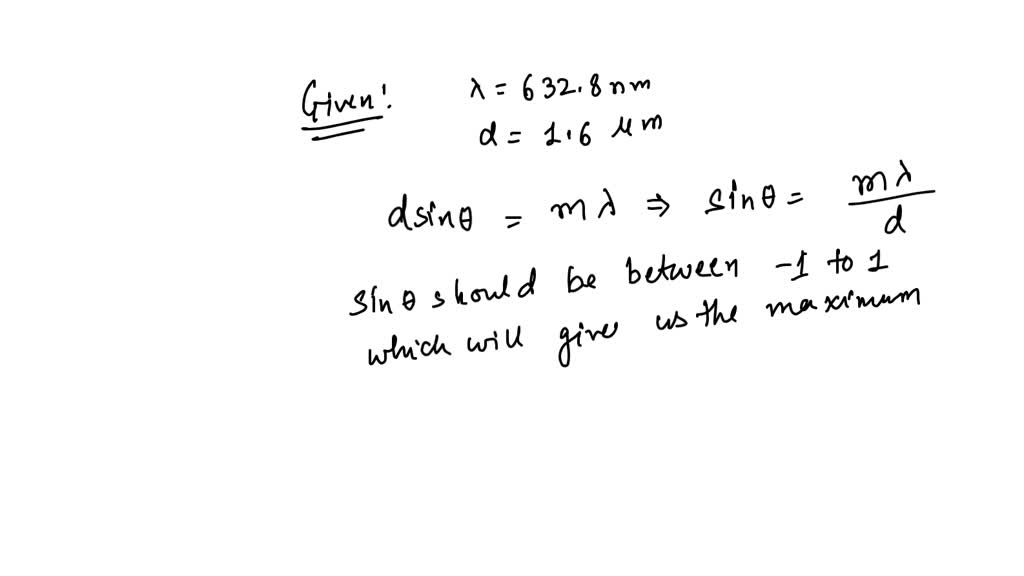 Given! λ = 632.8 nm
d = 1.6 μm
dsinθ = mλ ⇒ sinθ = mλ/d
sinθ should be between -1 to 1
which will gives us the maximum